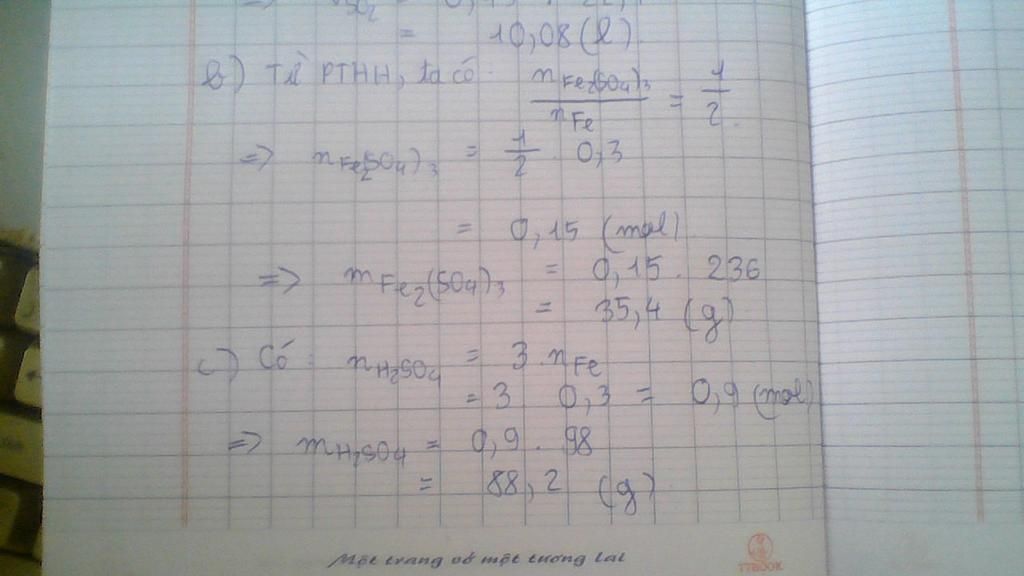 = 10,08 (l)
b) Từ PTHH, ta có: nFe2(SO4)3 / nFe = 1/2
=> nFe2(SO4)3 = 1/2 . 0,3
= 0,15 (mol)
=> mFe2(SO4)3 = 0,15 . 236
= 35,4 (g)
c) Có: nH2SO4 = 3 . nFe
= 3 0,3 = 0,9 (mol)
=> mH2SO4 = 0,9 . 98
= 88,2 (g)
Một trang vở một tương lai
TTBOOK